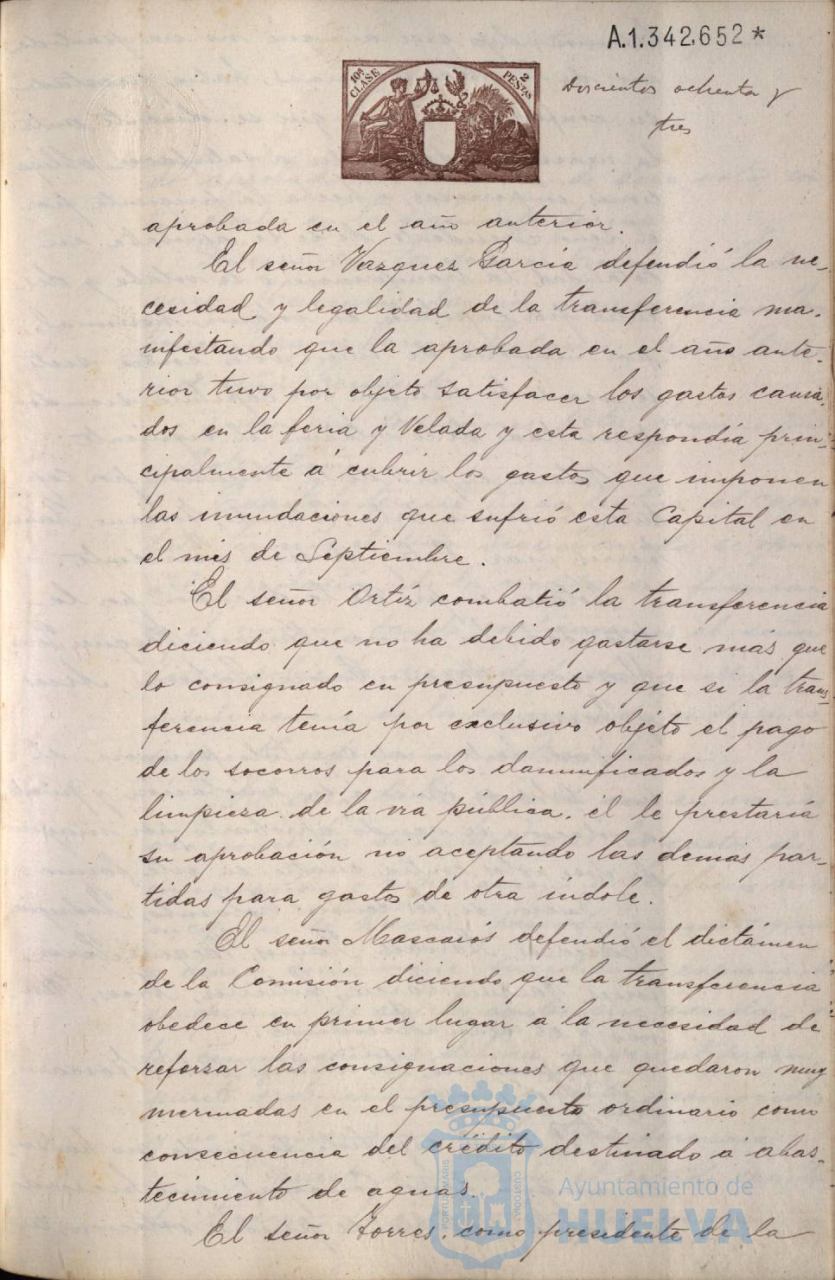 A.1.342,652*
10ª CLASE
2 PESTAS
Doscientos ochenta y
tres
aprobada en el año anterior.
El señor Vazquez Garcia defendió la ne-
cesidad y legalidad de la transferencia ma-
nifestando que la aprobada en el año ante-
rior tuvo por objeto satisfacer los gastos causa-
dos en la feria y Velada y esta respondía prin-
cipalmente á cubrir los gastos que imponen
las inundaciones que sufrió esta Capital en
el mes de Septiembre.
El señor Ortíz combatió la transferencia
diciendo que no ha debido gastarse más que
lo consignado en presupuesto y que si la trans-
ferencia tenía por exclusivo objeto el pago
de los socorros para los damnificados y la
limpieza de la vía pública, él le prestaría
su aprobación no aceptando las demás par-
tidas para gastos de otra índole.
El señor Mascarós defendió el dictámen
de la Comisión diciendo que la transferencia
obedece en primer lugar á la necesidad de
reforzar las consignaciones que quedaron muy
mermadas en el presupuesto ordinario como
consecuencia del crédito destinado á abas-
tecimiento de aguas.
El señor Torres, como presidente de la
Ayuntamiento de
HUELVA